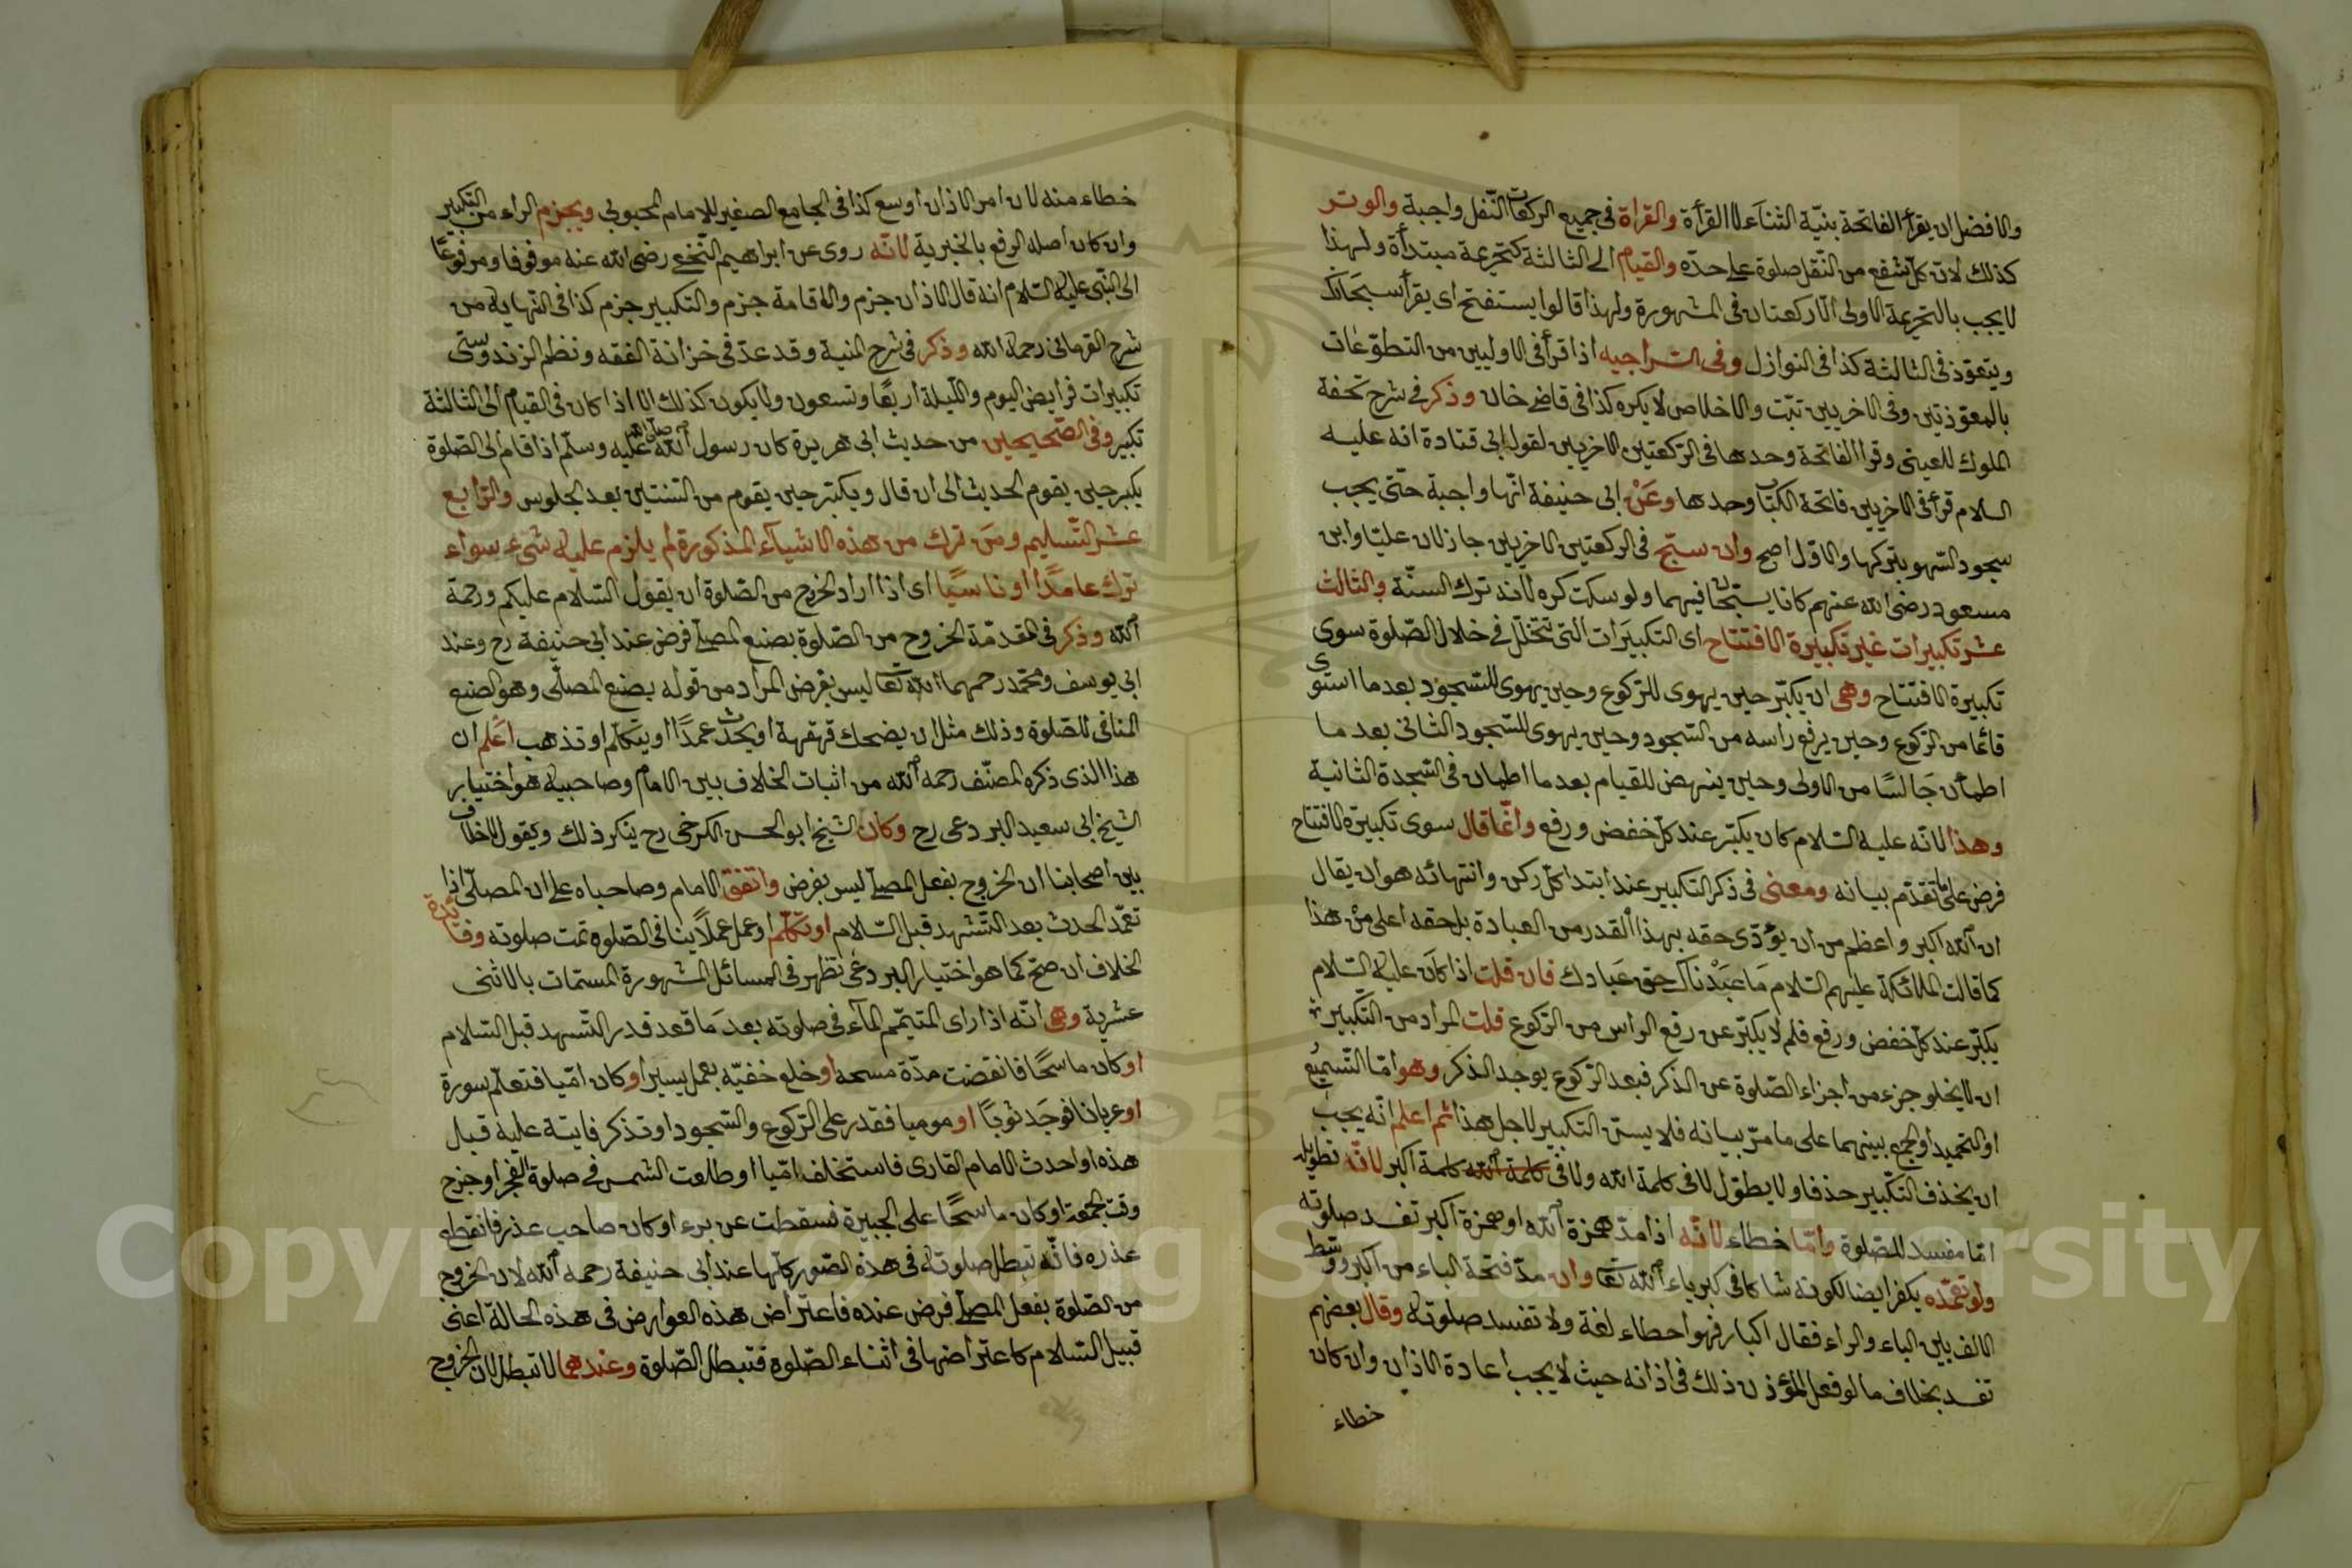 والافضل ان يقرأ الفاتحة بنيّة الثناء لا القرأة والقراة فى جميع الركعات النّفل واجبة والوتر
كذلك لانّ كلّ شفع من النّفل صلوة على حدّه والقيام الى الثالثة كتحريمة مبتدأة ولهذا
لا يجب بالتحريمة الاولى الّا ركعتان فى المشهورة ولهذا قالوا يستفتح اى يقرأ سبحانك
ويتعوّذ فى الثالثة كذا فى النوازل وفى السراجيه اذا قرأ فى الاوليين من التطوّعات
بالمعوّذتين وفى الاخريين تبّت والاخلاص لا يكره كذا فى قاضى خان وذكر فى شرح تحفة
الملوك للعينى وقرا الفاتحة وحدها فى الركعتين الاخريين لقول ابى قتادة انه عليه
السلام قرأ فى الاخريين فاتحة الكتاب وحدها وعن ابى حنيفة انّها واجبة حتّى يجب
سجود السّهو بتركها والاوّل اصح وان سبّح فى الركعتين الاخريين جاز لان عليّا وابن
مسعود رضى الله عنهم كانا يسبّحان فيهما ولو سكت كره لانه ترك السنّة والثالث
عشر تكبيرات غير تكبيرة الافتتاح اى التكبيرات التى تتخلّل فى خلال الصّلوة سوى
تكبيرة الافتتاح وهى ان يكبّر حين يهوى للرّكوع وحين يهوى للسّجود بعد ما استوى
قائما من الرّكوع وحين يرفع راسه من السّجود وحين يهوى للسّجود الثانى بعد ما
اطمأن جالسًا من الاولى وحين ينهض للقيام بعد ما اطمان فى السّجدة الثانية
وهذا لانّه عليه السّلام كان يكبّر عند كلّ خفض ورفع وانّما قال سوى تكبيرة الافتتاح
فرض على ما تقدّم بيانه ومعنى فى ذكر التكبير عند ابتدا كلّ ركن وانتهائه هو ان يقال
ان الله اكبر واعظم من ان يؤدّى حقه بهذا القدر من العبادة بل حقه اعلى من هذا
كما قالت الملائكة عليهم السّلام ما عبدناك حق عبادك فان قلت اذا كان عليه السّلام
يكبّر عند كلّ خفض ورفع فلم لا يكبّر عن رفع الراس من الرّكوع قلت المراد من التكبير
ان لا يخلو جزء من اجزاء الصّلوة عن الذكر فبعد الرّكوع يوجد الذكر وهو امّا التّسميع
او التحميد او الجمع بينهما على ما مرّ بيانه فلا يسنّ التكبير لاجل هذا ثم اعلم انّه يجب
ان يحذف التكبير حذفا ولا يطوّل لا فى كلمة الله ولا فى كلمة الله كلمة اكبر لانّه تطويله
امّا مفسد للصّلوة وامّا خطاء لانّه اذا مدّ همزة الله او همزة اكبر تفسد صلوته
ولو تعمّده يكفر ايضا لكونه شاكا فى كبرياء الله تعا وان مدّ فتحة الباء من اكبر ووسّط
الالف بين الباء والراء فقال اكبار فهو اخطاء لغة ولا تفسد صلوته وقال بعضهم
تفسد بخلاف ما لو فعل المؤذن ذلك فى اذانه حيث لا يجب اعادة الاذان وان كان
خطاء
خطاء منه لان امر الاذان اوسع كذا فى الجامع الصغير للامام المحبوبى ويجزم الراء من التكبير
وان كان اصله الرفع بالخبرية لانّه روى عن ابراهيم النّخعى رضى الله عنه موقوفا ومرفوعًا
الى النّبى عليه السّلام انه قال الاذان جزم والاقامة جزم والتكبير جزم كذا فى النهايه من
شرح القرمانى رحمه الله وذكر فى شرح المنية وقد عدّ فى خزانة الفقه ونظم الزندوستى
تكبيرات فرايض اليوم واللّيلة اربعًا وتسعون ولا يكون كذلك الا اذا كان فى القيام الى الثالثة
تكبير وفى الصّحيحين من حديث ابى هريرة كان رسول الله صلى الله عليه وسلّم اذا قام الى الصّلوة
يكبر حين يقوم الحديث الى ان قال ويكبّر حين يقوم من الثنتين بعد الجلوس والرّابع
عشر التّسليم ومن ترك من هذه الاشياء المذكورة لم يلزم عليه شىء سواء
ترك عامدًا او ناسيًا اى اذا اراد الخروج من الصّلوة ان يقول السّلام عليكم ورحمة
الله وذكر فى المقدمّة الخروج من الصّلوة بصنع المصلّى فرض عند ابى حنيفة رح وعند
ابى يوسف ومحمّد رحمهما الله تعا ليس بفرض المراد من قوله بصنع المصلّى وهو الصنع
المنافى للصّلوة وذلك مثل ان يضحك قهقهة او يحدث عمدًا او يتكلّم او تذهب اعلم ان
هذا الذى ذكره المصنّف رحمه الله من اثبات الخلاف بين الامام وصاحبيه هو اختيار
الشيخ ابى سعيد البردعى رح وكان الشيخ ابو الحسن الكرخى رح ينكر ذلك ويقول لا خلاف
بين اصحابنا ان الخروج بفعل المصلّى ليس بفرض واتفق الامام وصاحباه على ان المصلّى اذا
تعمّد الحدث بعد التّشهد قبل السّلام او تكلّم او عمل عملاً ينافى الصّلوة تمت صلوته وفائدة
الخلاف ان صحّ كما هو اختيار البردعى تظهر فى المسائل المشهورة المسمّات بالاثنى
عشرية وهى انّه اذا راى المتيمّم الماء فى صلوته بعد ما قعد قدر التّشهد قبل السّلام
او كان ماسحًا فانقضت مدّة مسحه او خلع خفيّه بعمل يسير او كان امّيا فتعلّم سورة
او عريانا فوجد ثوبًا او موميا فقدر على الرّكوع والسّجود او تذكر فايتة عليه قبل
هذه او احدث الامام القارى فاستخلف امّيا او طلعت الشمس فى صلوة الفجر او خرج
وقت الجمعة او كان ماسحًا على الجبيرة فسقطت عن برء او كان صاحب عذر فانقطع
عذره فانّه تبطل صلوته فى هذه الصّور كلّها عند ابى حنيفة رحمه الله لان الخروج
من الصّلوة بفعل المصلّى فرض عنده فاعتراض هذه العوارض فى هذه الحالة اعنى
قبيل السّلام كاعتراضها فى اثناء الصّلوة فتبطل الصّلوة وعندهما لا تبطل لان الخروج
Copyright © King Saud University